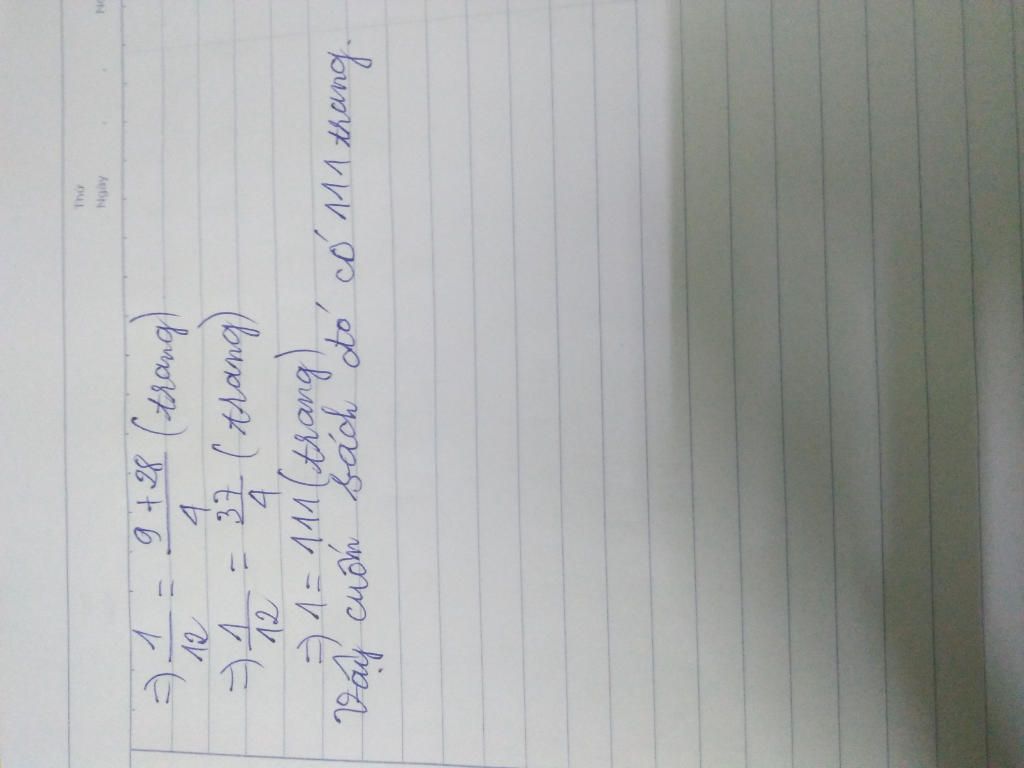 Thứ
Ngày
=) 1/12 = 9 + 28/4 (trang)
=) 1/12 = 37/4 (trang)
=) 1 = 111 (trang)
Vậy cuốn sách đó có 111 trang.